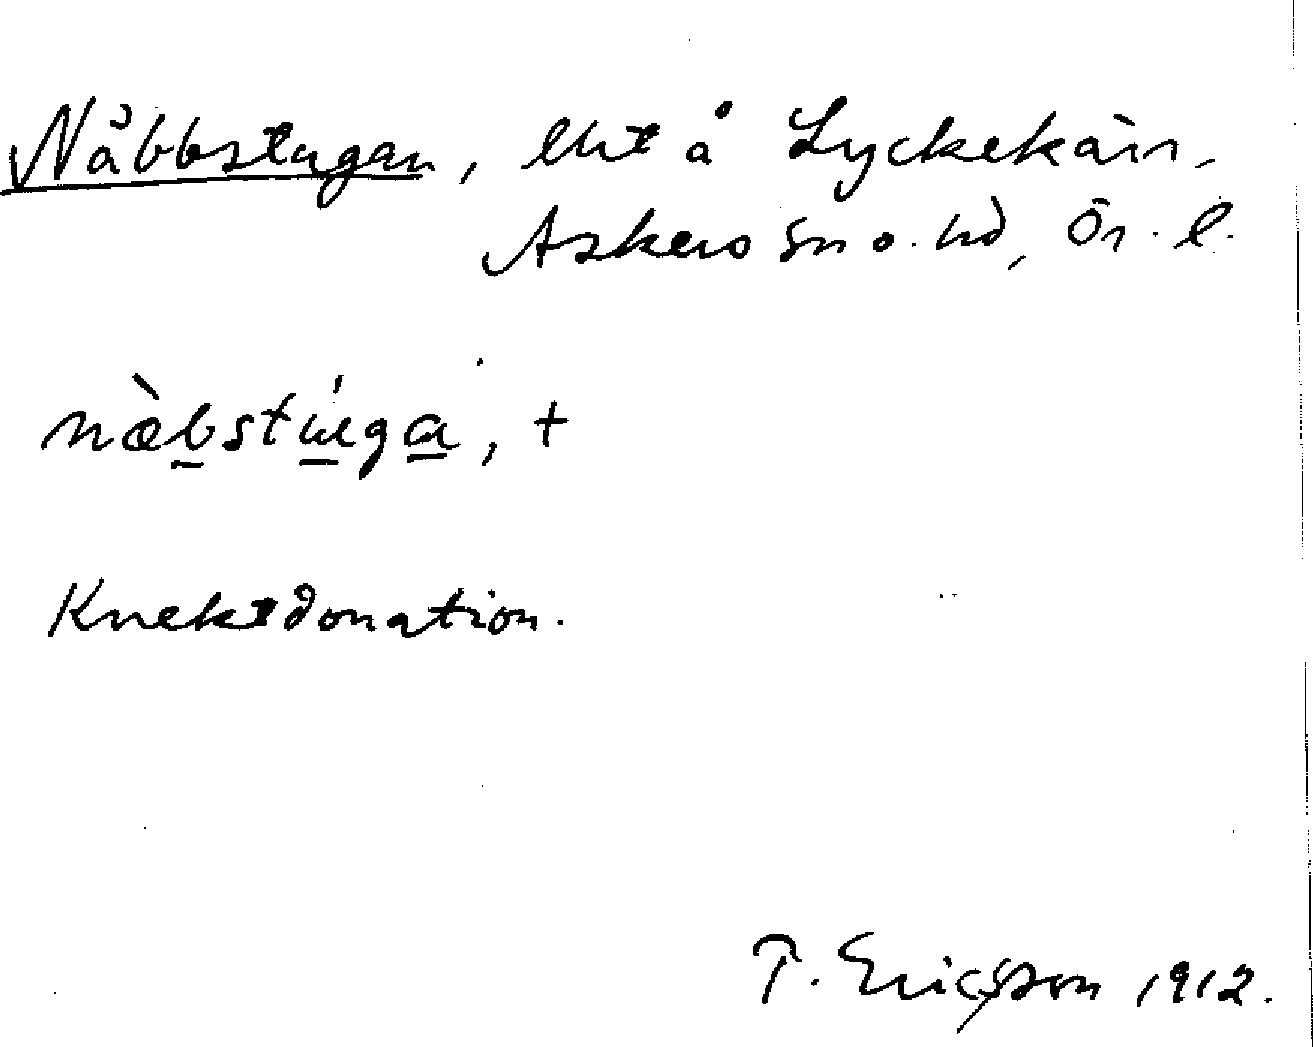 Näbbstugan, lht å Lyckekärr,
Askers sn o. hd, Ör. l.
næ̀bstúga, +
Knektdonation.
T. Ericsson 1912.